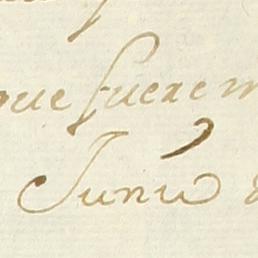 que fuere m
Junio